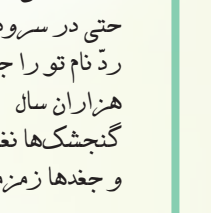 حتی در سرود
ردّ نام تو را ج
هزاران سال
گنجشک‌ها نغ
و جغدها زمز